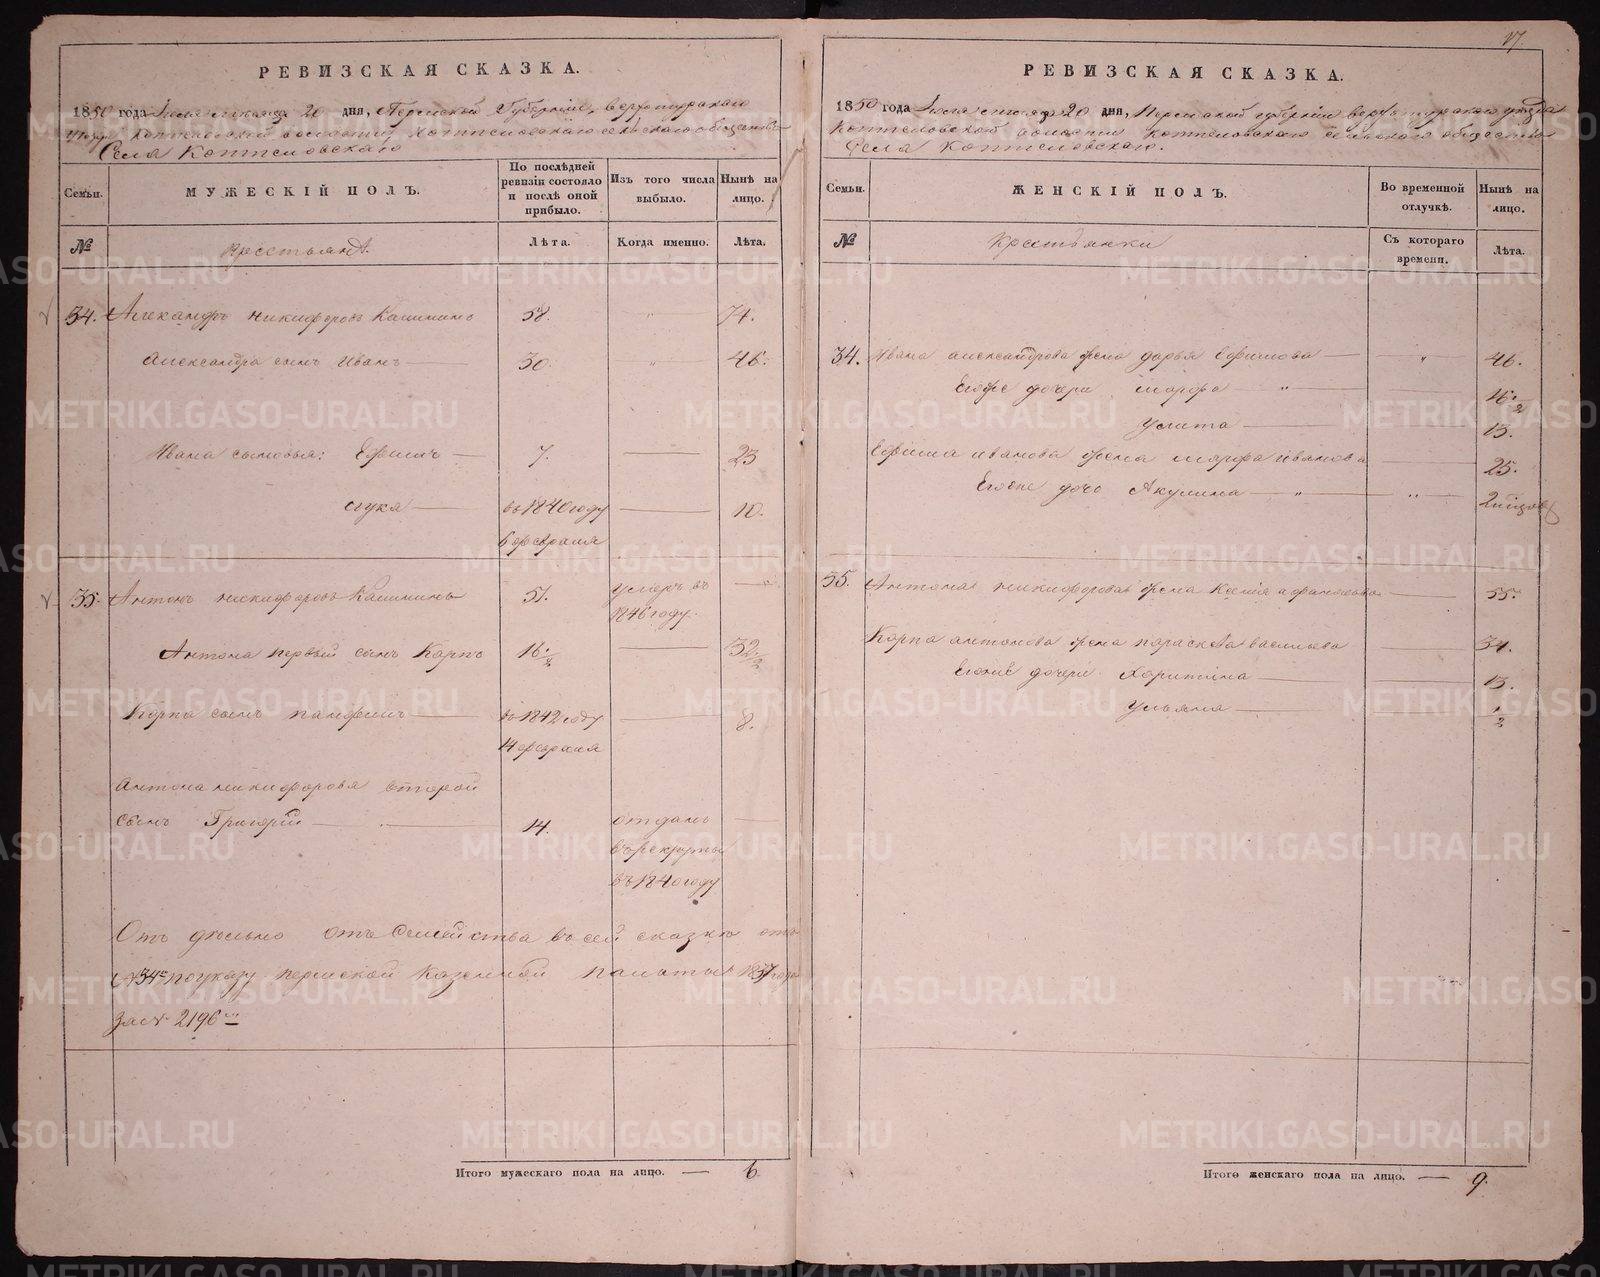 РЕВИЗСКАЯ СКАЗКА.
1850 года Июля месяца 20 дня, Пермской Губерніи, Верхотурскаго
уезда Коптеловской волости, Коптеловскаго сельскаго общества
Села Коптеловскаго
Семьи.
МУЖЕСКІЙ ПОЛЪ.
По послѣдней ревизіи состояло и послѣ оной прибыло.
Изъ того числа выбыло.
Нынѣ на лицо.
№
Крестьянъ.
Лѣта.
Когда именно.
Лѣта.
34. Александръ Никифоровъ Калининъ 58. " 74.
Александра сынъ Иванъ 30. " 46.
Ивана сыновья: Ефимъ 7. 23
Лука въ 1840 году 10.
6 февраля
35. Антонъ Никифоровъ Калининъ 51. умеръ въ
1846 году.
Антона первый сынъ Карпъ 16 1/2 32 1/2
Карпа сынъ Панфилъ въ 1842 году 8.
14 февраля
Антона Никифорова второй
сынъ Григорій 14. отданъ
въ рекруты
въ 1840 году
Отдѣльно отъ Семейства въ сей сказкѣ отъ
№ 34 по указу Пермской Казенной палаты 1837 года
за № 2196
Итого мужескаго пола на лицо. — 6.
17
РЕВИЗСКАЯ СКАЗКА.
1850 года Июля месяца 20 дня, Пермской губерніи Верхотурскаго уезда
Коптеловской волости Коптеловскаго сельскаго общества
Села Коптеловскаго.
Семьи.
ЖЕНСКІЙ ПОЛЪ.
Во временной отлучкѣ.
Нынѣ на лицо.
№
Крестьянки
Съ котораго времени.
Лѣта.
34. Ивана Александрова жена Дарья Ефимова " 46.
Егоже дочери Марфа " 16 1/2
Улита 13.
Ефима Иванова жена Марфа Иванова 25.
Егоже дочь Акулина " " 2 месяцов
35. Антона Никифорова жена Ксенія Афанасьева 55.
Карпа Антонова жена Парасковья Васильева 34.
Егоже дочери Харитина 13.
Ульяна 1/2
Итого женскаго пола на лицо. — 9.
METRIKI.GASO-URAL.RU